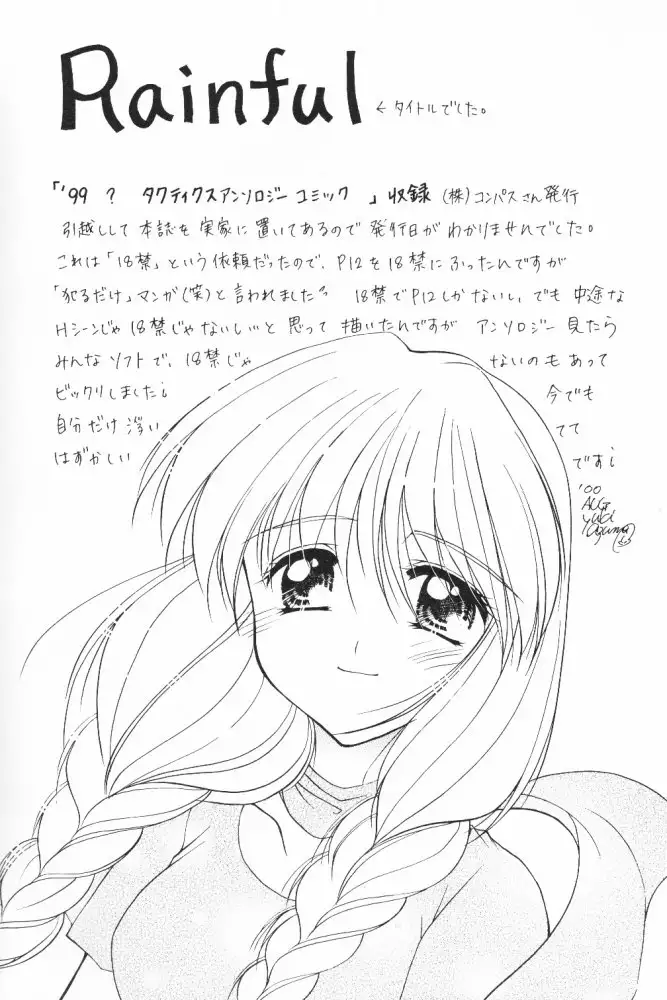 Rainful ← タイトルでした。
「'99 ? タクティクスアンソロジーコミック 」収録 (株)コンパスさん発行
引越しして本誌を実家に置いてあるので発行日がわかりませんでした。
これは「18禁」という依頼だったので、P12を18禁にふったんですが
「犯るだけ」マンガ(笑)と言われました 18禁でP12しかないし、でも中途な
Hシーンじゃ18禁じゃないしぃと思って描いたんですがアンソロジー見たら
みんなソフトで、18禁じゃ ないのもあって
ビックリしました; 今でも
自分だけ浮い てて
はずかしい です;
'00
Aug